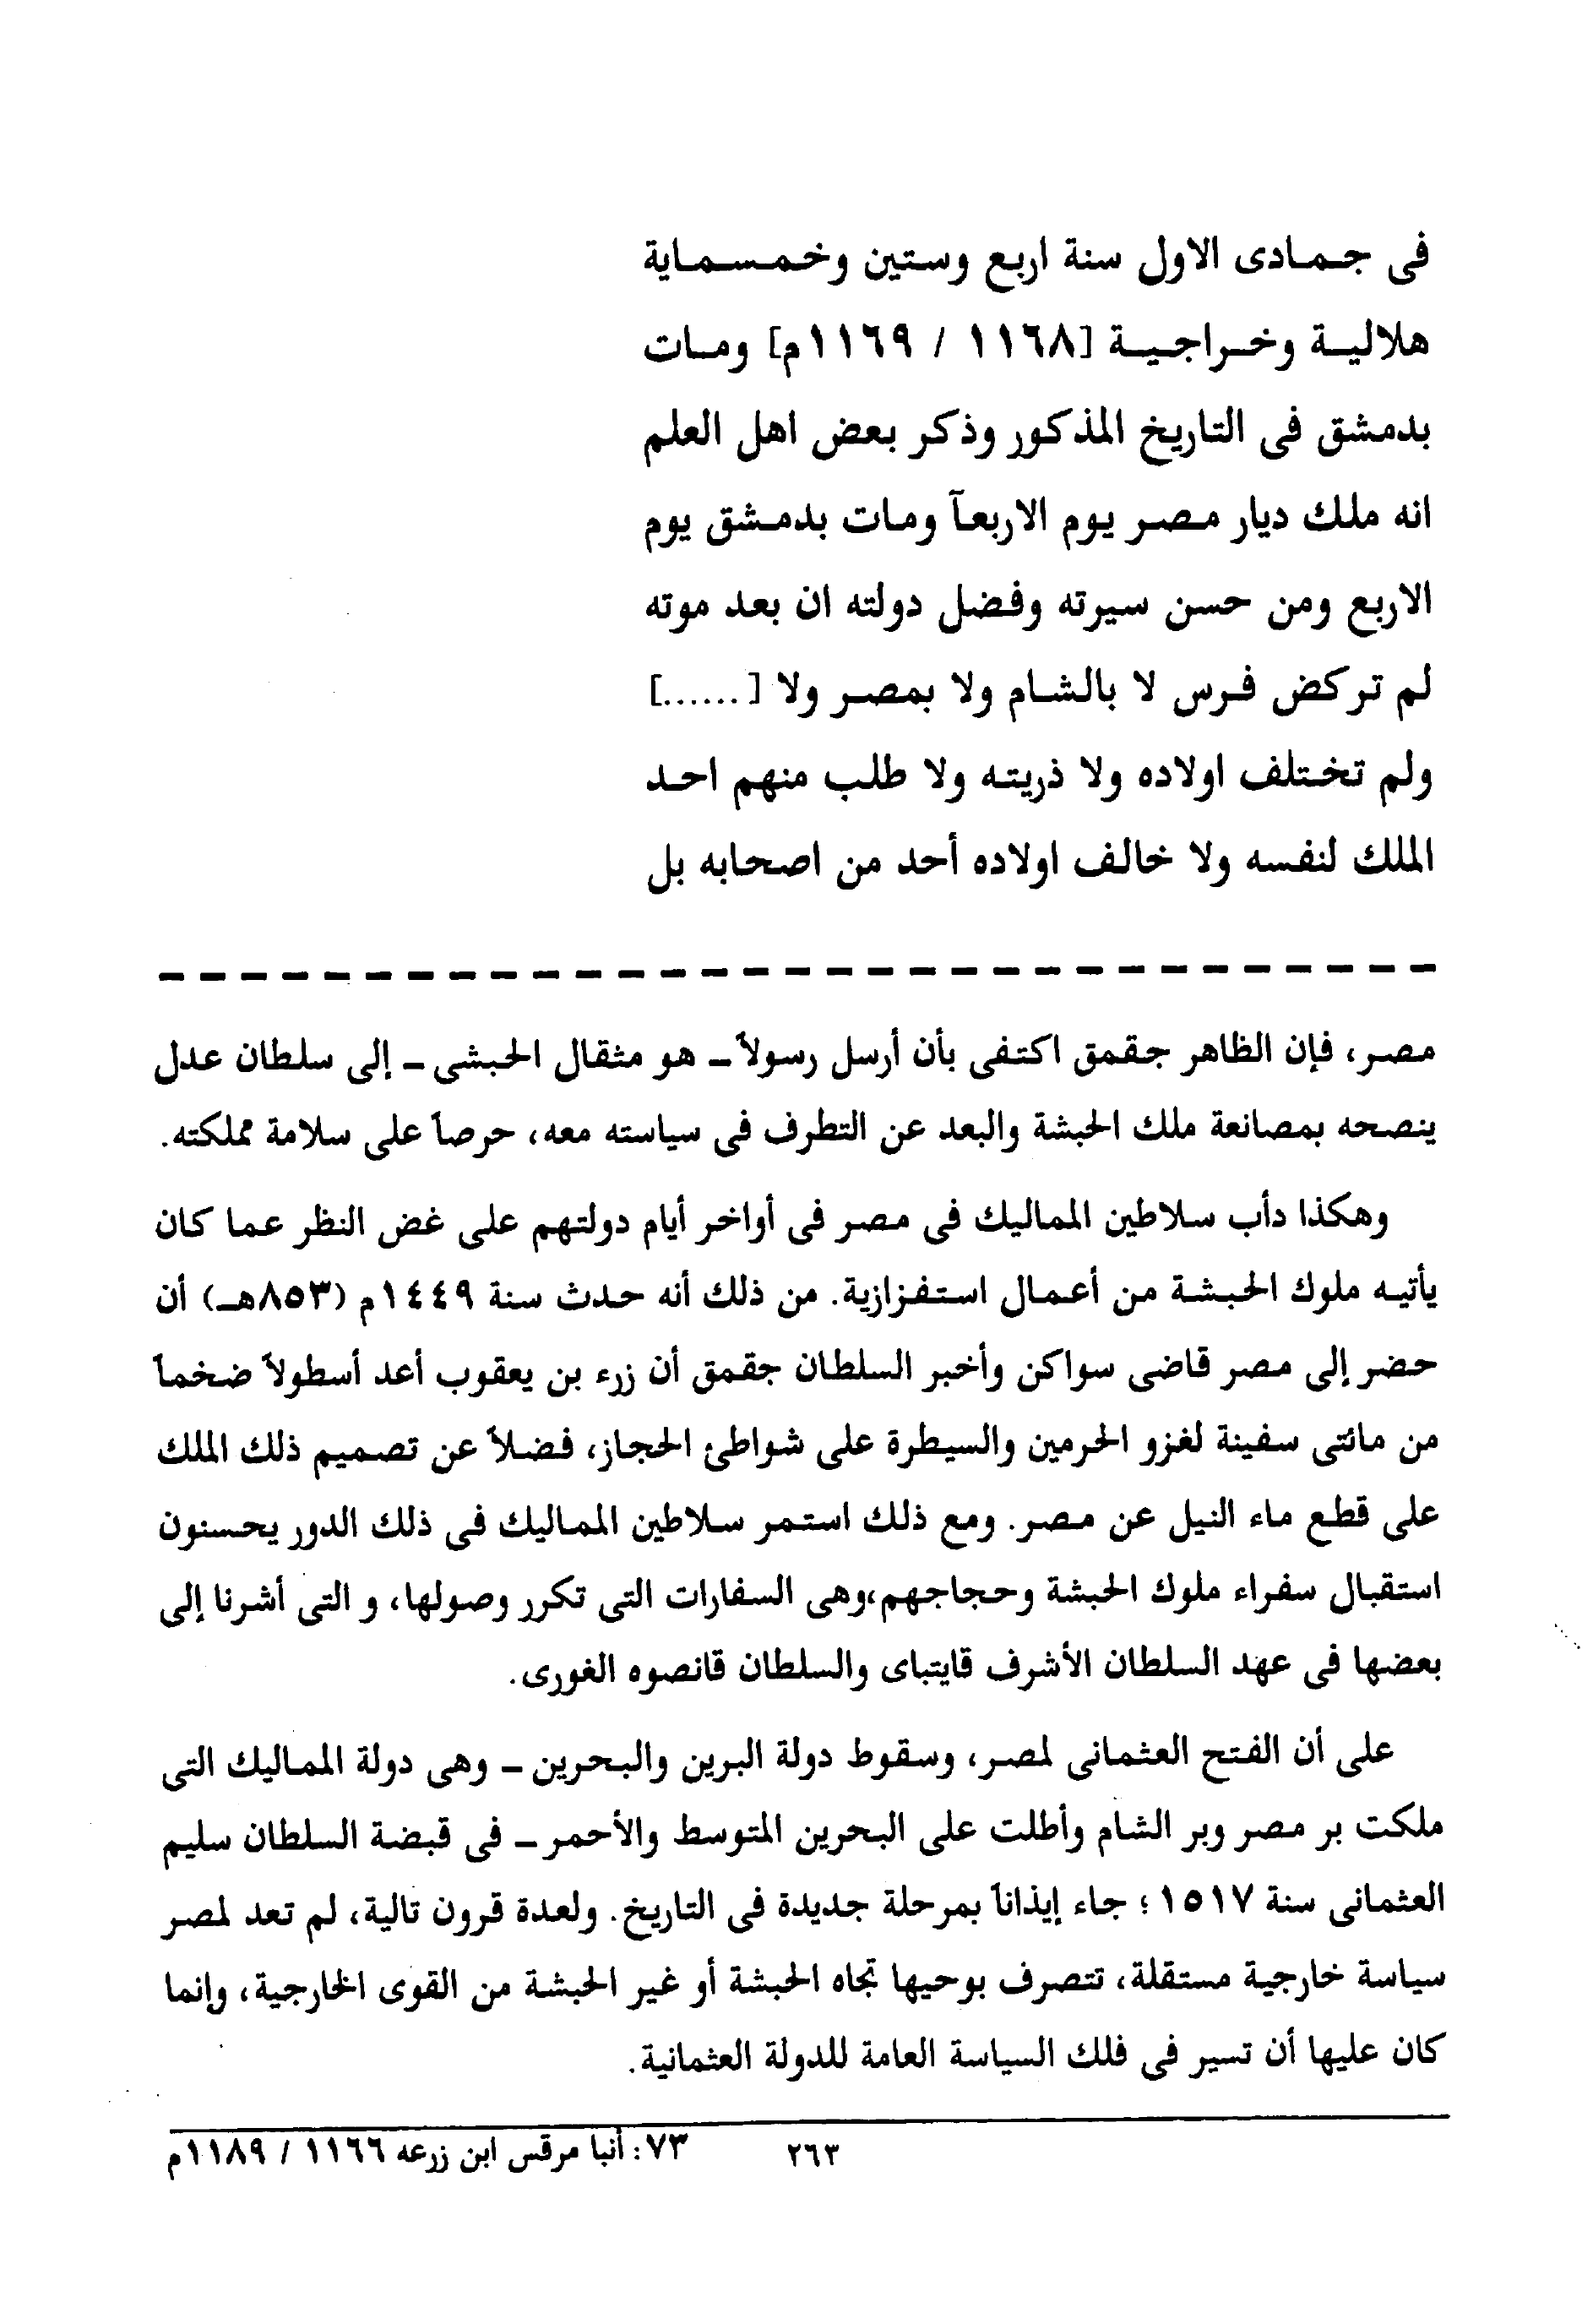 فى جمادى الاول سنة اربع وستين وخمسماية
هلالية وخراجية [١١٦٨ / ١١٦٩م] ومات
بدمشق فى التاريخ المذكور وذكر بعض اهل العلم
انه ملك ديار مصر يوم الاربعآ ومات بدمشق يوم
الاربع ومن حسن سيرته وفضل دولته ان بعد موته
لم تركض فرس لا بالشام ولا بمصر ولا [......]
ولم تختلف اولاده ولا ذريته ولا طلب منهم احد
الملك لنفسه ولا خالف اولاده أحد من اصحابه بل
مصر، فإن الظاهر جقمق اكتفى بأن أرسل رسولاً ـ هو مثقال الحبشى ـ إلى سلطان عدل
ينصحه بمصانعة ملك الحبشة والبعد عن التطرف فى سياسته معه، حرصاً على سلامة مملكته.
وهكذا دأب سلاطين المماليك فى مصر فى أواخر أيام دولتهم على غض النظر عما كان
يأتيه ملوك الحبشة من أعمال استفزازية. من ذلك أنه حدث سنة ١٤٤٩م (٨٥٣هـ) أن
حضر إلى مصر قاضى سواكن وأخبر السلطان جقمق أن زرء بن يعقوب أعد أسطولاً ضخماً
من مائتى سفينة لغزو الحرمين والسيطرة على شواطئ الحجاز، فضلاً عن تصميم ذلك الملك
على قطع ماء النيل عن مصر. ومع ذلك استمر سلاطين المماليك فى ذلك الدور يحسنون
استقبال سفراء ملوك الحبشة وحجاجهم،وهى السفارات التى تكرر وصولها، و التى أشرنا إلى
بعضها فى عهد السلطان الأشرف قايتباى والسلطان قانصوه الغورى.
على أن الفتح العثمانى لمصر، وسقوط دولة البرين والبحرين ـ وهى دولة المماليك التى
ملكت بر مصر وبر الشام وأطلت على البحرين المتوسط والأحمر ـ فى قبضة السلطان سليم
العثمانى سنة ١٥١٧ ؛ جاء إيذاناً بمرحلة جديدة فى التاريخ. ولعدة قرون تالية، لم تعد لمصر
سياسة خارجية مستقلة، تتصرف بوحيها تجاه الحبشة أو غير الحبشة من القوى الخارجية، وإنما
كان عليها أن تسير فى فلك السياسة العامة للدولة العثمانية.
٢٦٣ ٧٣: أنبا مرقس ابن زرعه ١١٦٦ / ١١٨٩م